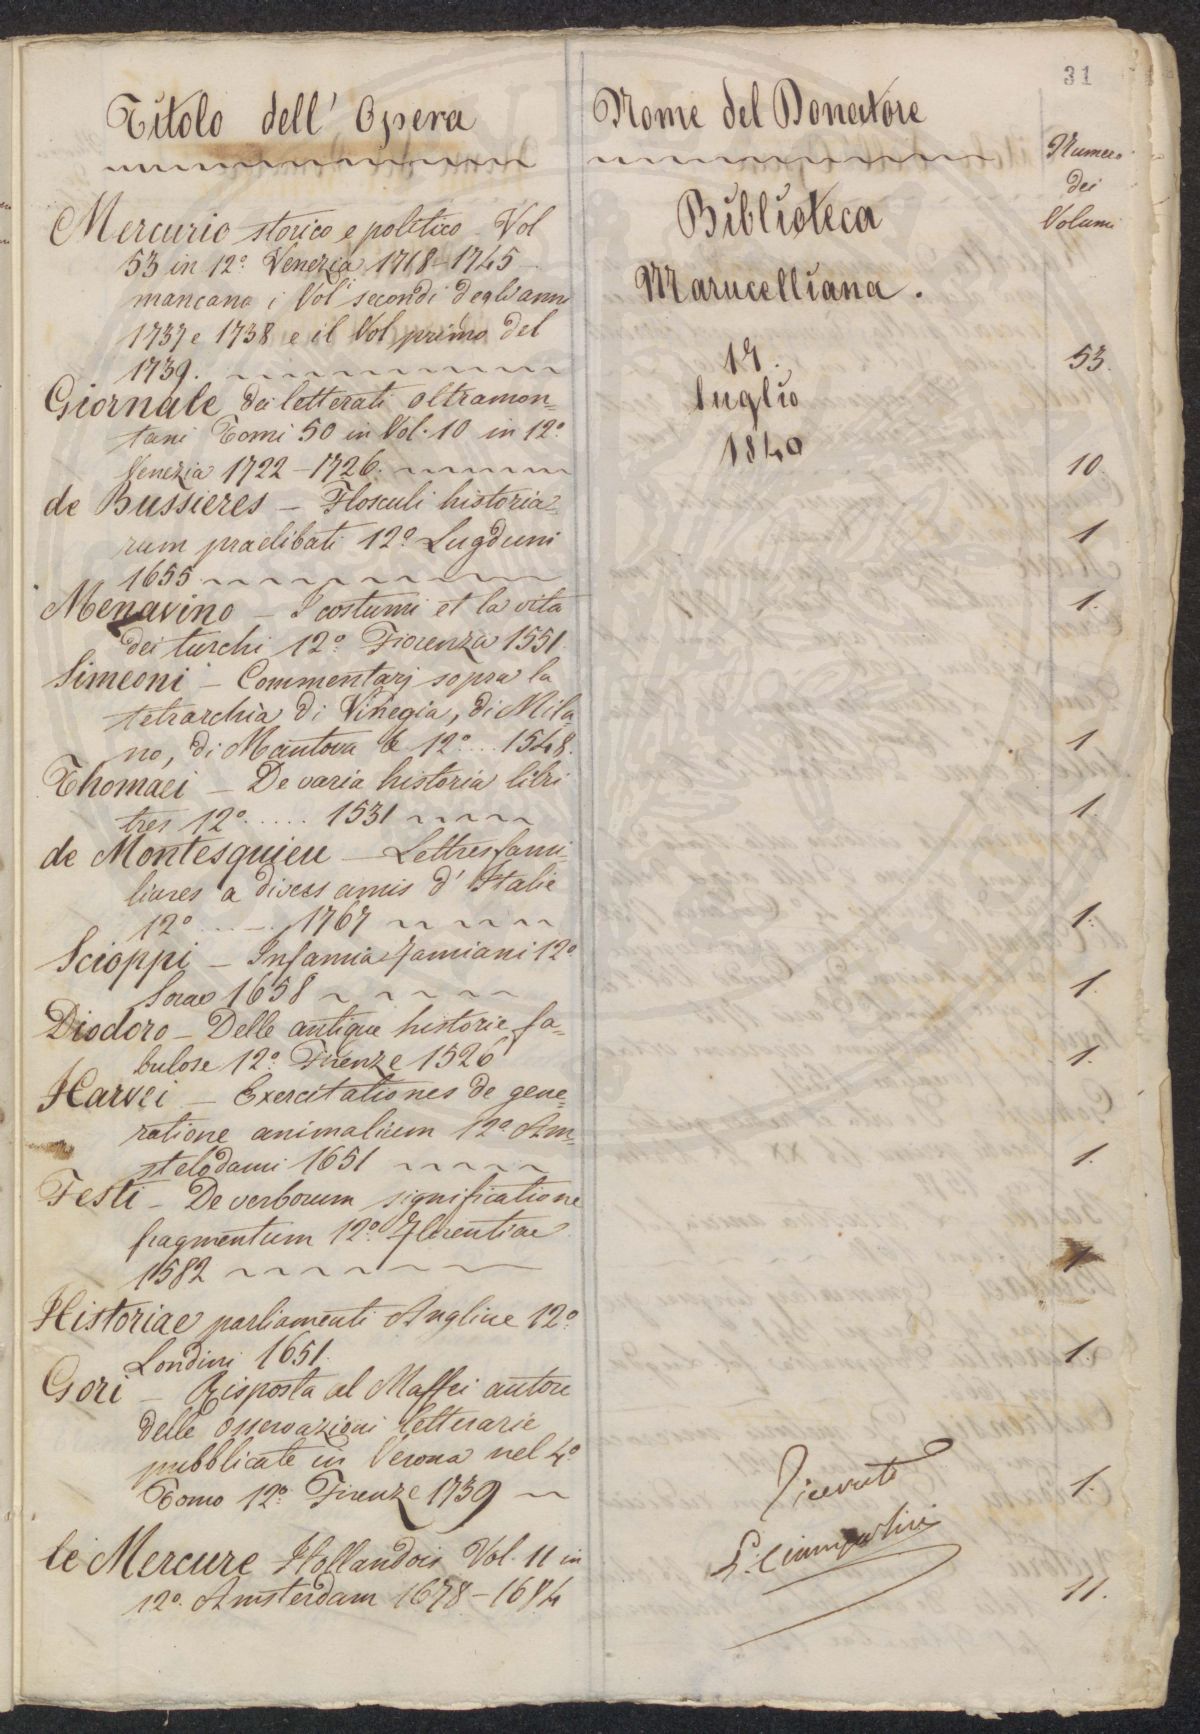 31
Titolo dell' Opera
Nome del Donatore
Numero
dei
Volumi
Mercurio storico e politico Vol
53 in 12° Venezia 1718-1745
mancano i Vol secondi degli anni
1737 e 1738 e il Vol primo del
1739.
53.
Giornale dei letterati oltramon=
tani Tomi 50 in Vol. 10 in 12°
Venezia 1722-1726.
10
de Bussieres - Flosculi historia=
rum praelibati 12° Lugduni
1655
1
Menavino - I costumi et la vita
dei turchi 12° Fiorenza 1551
1.
Simeoni - Commentarj sopra la
tetrarchia di Vinegia, di Mila=
no, di Mantova & 12° ... 1548.
1
Thomaei - De varia historia libri
tres 12° ..... 1531
1.
de Montesquieu - Lettres fami=
liares a divers amis d' Italie
12° ..... 1767
1.
Scioppi - Infamia Famiani 12°
Sorae 1658
1.
Diodoro - Delle antique historie fa=
bulose 12° Firenze 1526
1.
Harvei - Exercitationes de gene=
ratione animalium 12° Am=
stelodami 1651
1.
Festi - De verborum significatione
fragmentum 12° Florentiae
1582
1
Historiae parliamenti Angliae 12°
Londini 1651
1.
Gori - Risposta al Maffei autore
delle osservazioni letterarie
pubblicate in Verona nel 4°
Tomo 12° Firenze 1739
1.
le Mercure Hollandois Vol. 11 in
12° Amsterdam 1678-1684
11.
Biblioteca
Marucelliana.
17.
luglio
1840
Ricevute